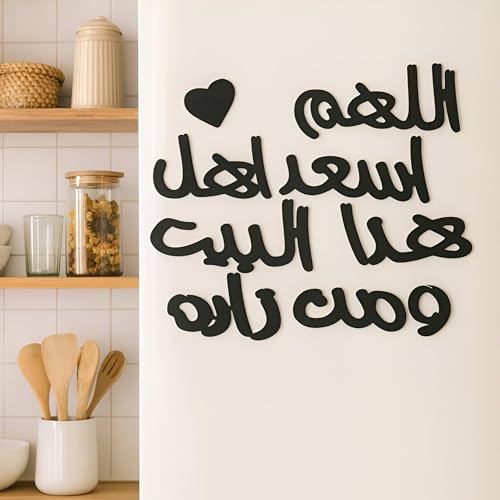 اللهم
اسعد اهل
هذا البيت
ومن زاره